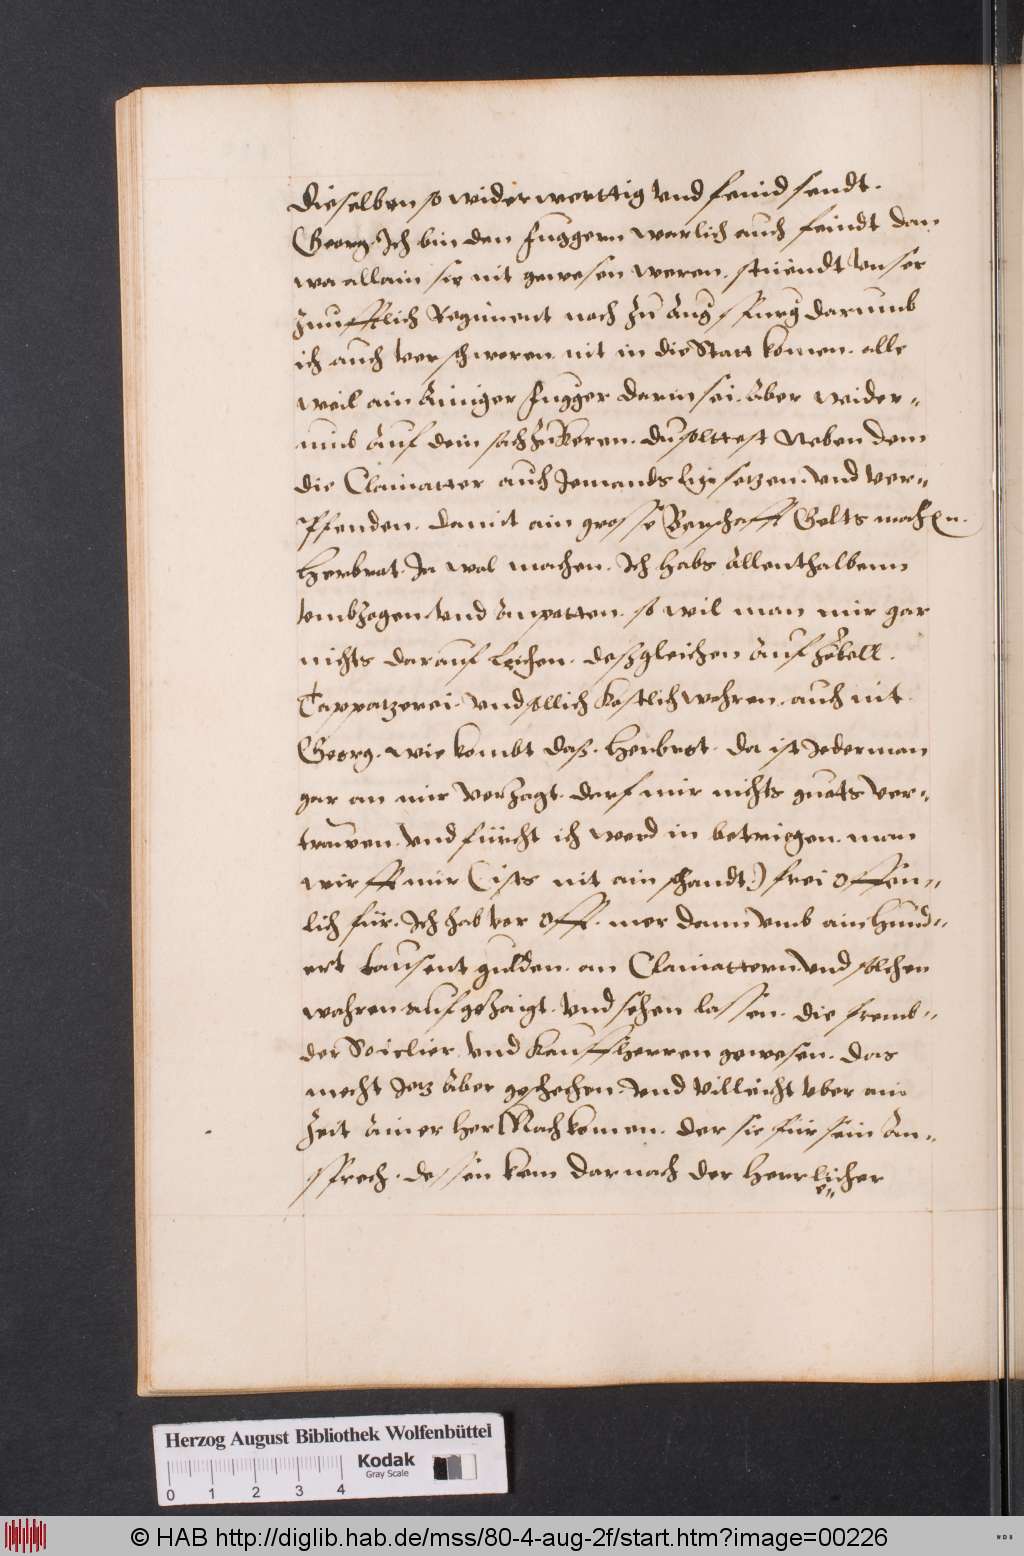 dieselben so widerwerttig vnd feind sendt.
Georg. Ich bin den Fuggern warlich auch feindt dan
wa allain sie nit gewesen weren. stüendt vnser
Zunfftlich Regiment noch zu Augspurg darumb
ich auch verschworen nit in die Statt komen. alle
weil ain ainiger Fugger darin sei. Aber wider-
umb auf dein sach zukeren. du soltest neben dem
die Clainatter auch Jemands besetzen. vnd ver-
Pfenden. damit ain grosse Barschafft Gelts machen.
Herbrot. Ja wol machen. Ich habs allenthalbenn
vmbzogen vnd anpotten. so wil man mir gar
nichts darauf leichen. deßgleichen auf zobell.
Tappatzerei. vnd sollich kostlich wahren. auch nit.
Georg. wie kombt daß. Herbrot. da ist Jederman
gar an mir verzagt. darf mir nichts guets ver-
trauen. vnd fürcht ich werd in betriegen. man
wirfft mir (ists nit ain schandt) frei offen-
lich für. Ich hab vor offt. mer dann vmb ain hund-
ert tausent gulden. an Clainattern vnd solchen
wahren aufgezaigt. vnd sehen lassen. die fremb-
der Soiclier vnd Kauffherren gewesen. das
mecht Jetz aber geschechen. vnd villeicht vber ain
Zeit ainer her Nachkomen. der sie für sein an-
sprech. dessen kem darnach der herr leicher
Herzog August Bibliothek Wolfenbüttel
Kodak
Gray Scale
0 1 2 3 4
© HAB http://diglib.hab.de/mss/80-4-aug-2f/start.htm?image=00226